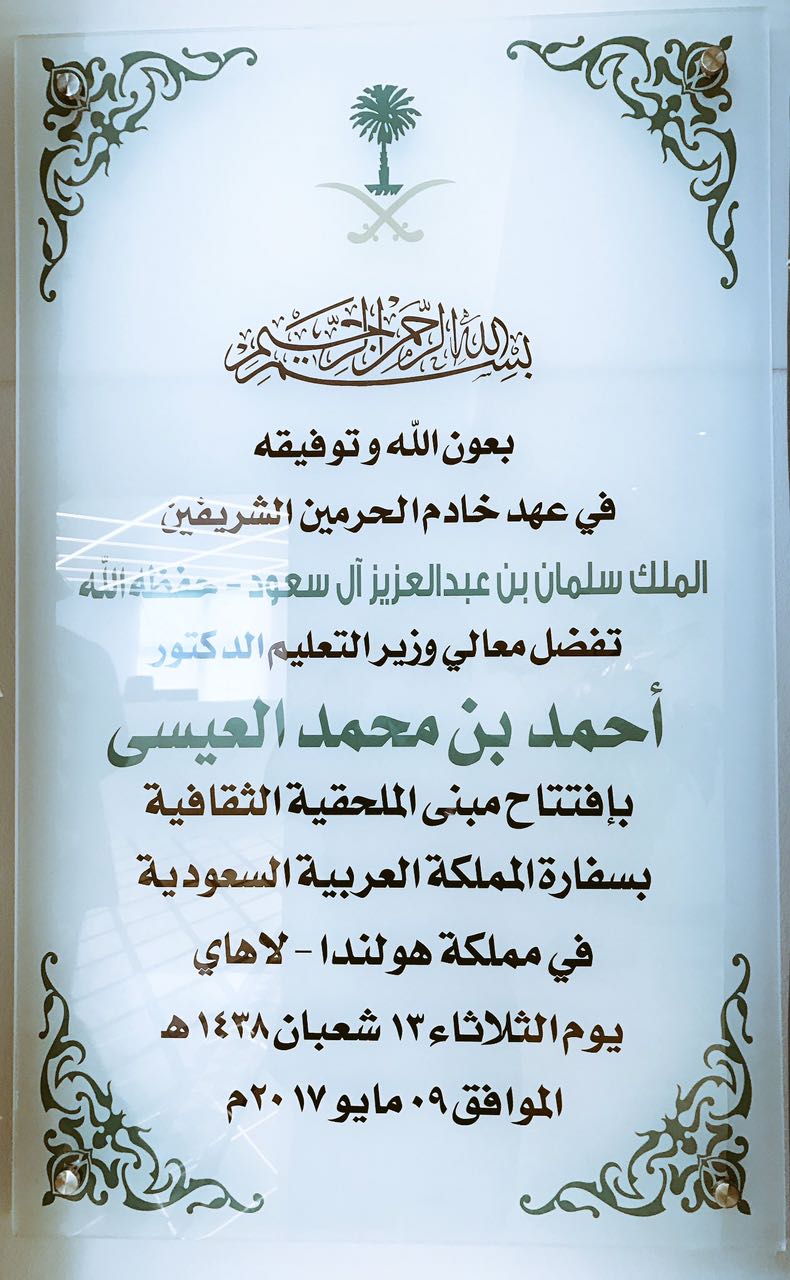 بسم الله الرحمن الرحيم
بعون الله وتوفيقه
في عهد خادم الحرمين الشريفين
الملك سلمان بن عبدالعزيز آل سعود - حفظه الله
تفضل معالي وزير التعليم الدكتور
أحمد بن محمد العيسى
بإفتتاح مبنى الملحقية الثقافية
بسفارة المملكة العربية السعودية
في مملكة هولندا - لاهاي
يوم الثلاثاء ١٣ شعبان ١٤٣٨ هـ
الموافق ٠٩ مايو ٢٠١٧م